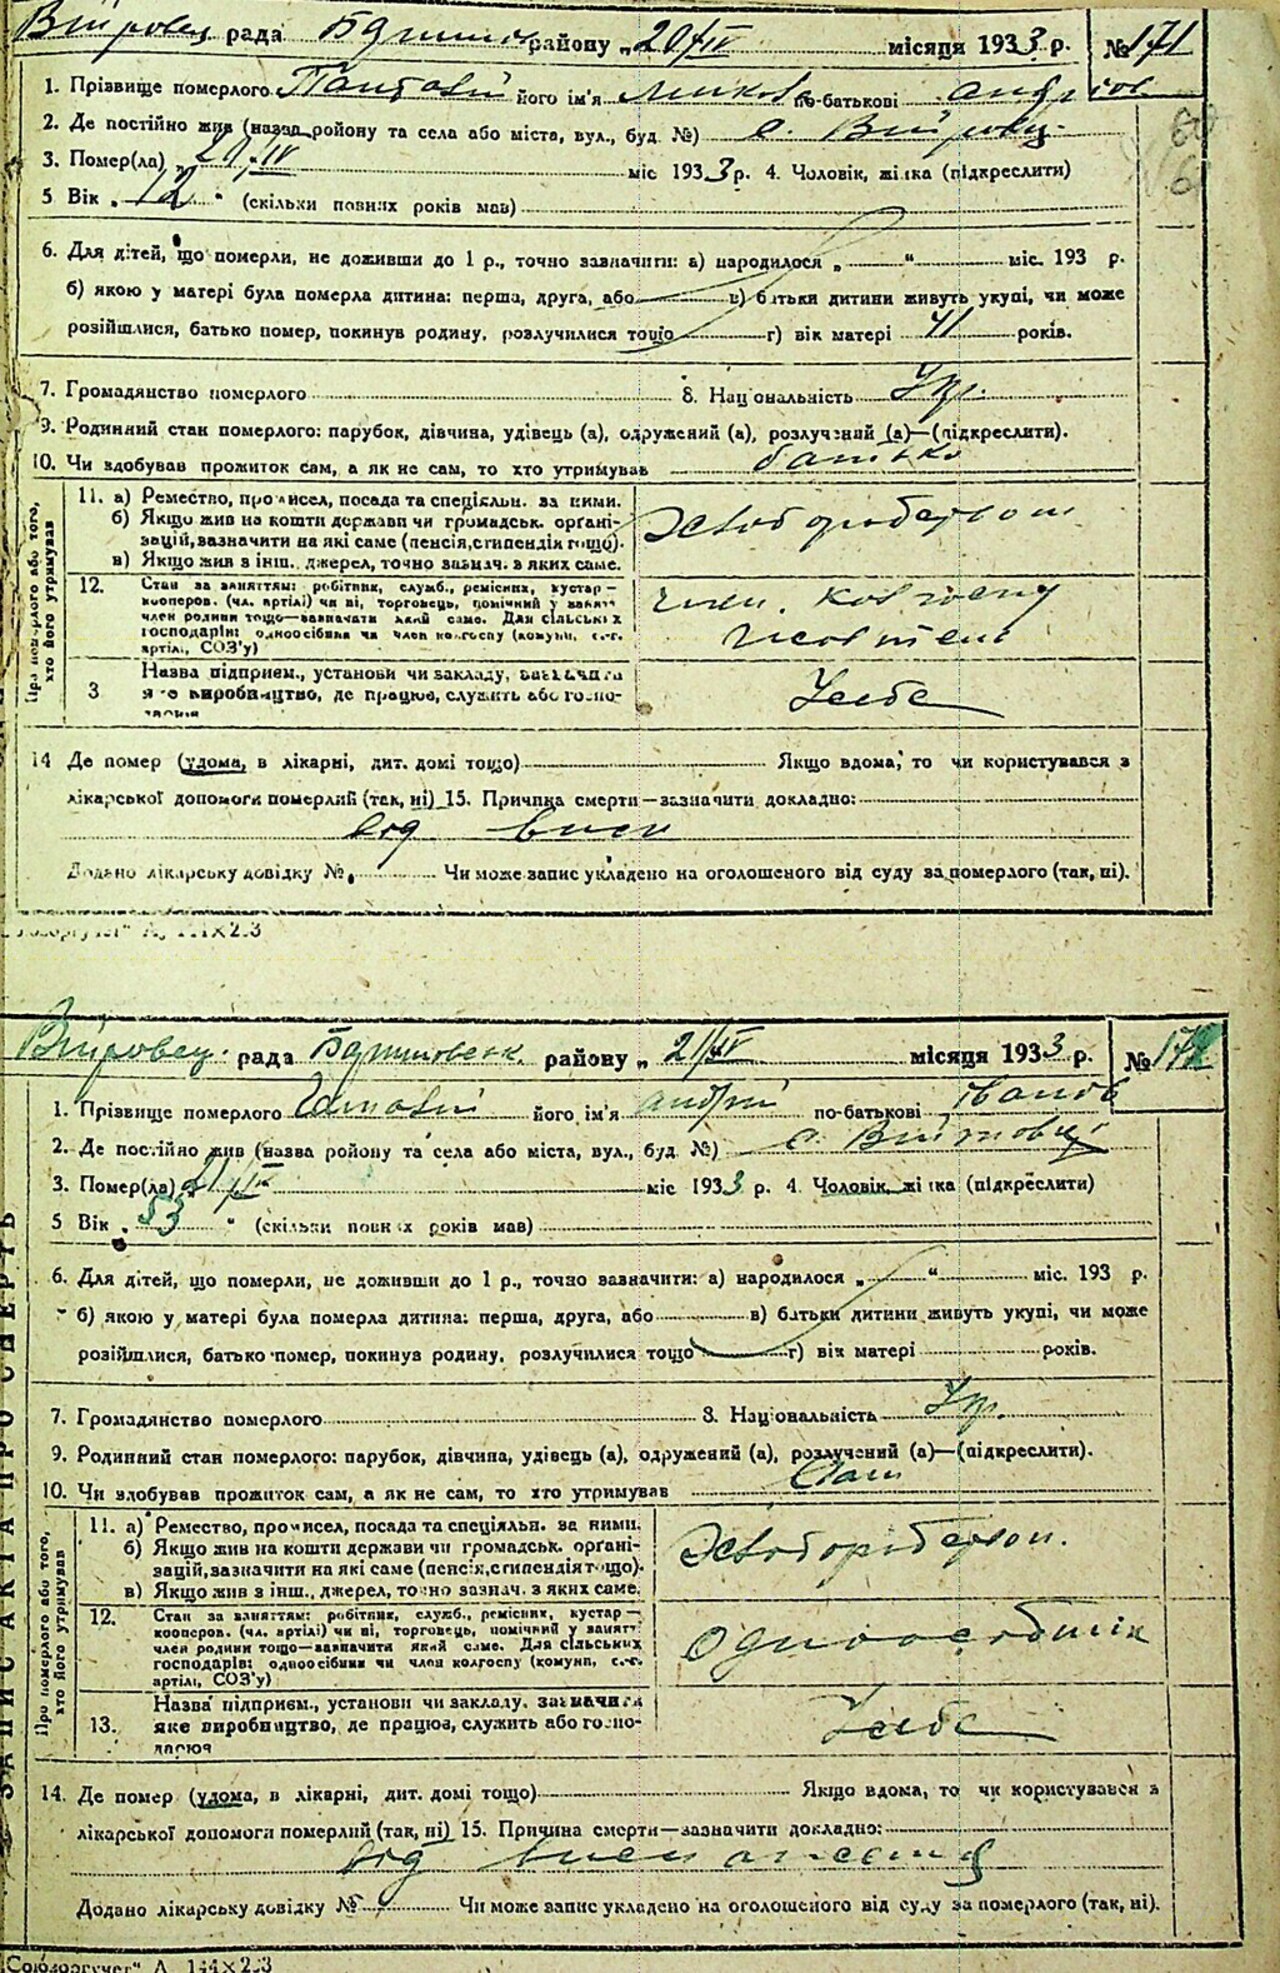 рада району „20/IV місяця 1933 р. № 171
1. Прізвище померлого його ім'я по-батькові
2. Де постійно жив (назва ройону та села або міста, вул., буд. №) с.
3. Помер(ла) „20/IV міс 1933 р. 4. Чоловік, жінка (підкреслити)
5 Вік „12" (скільки повних років мав)
6. Для дітей, що померли, не доживши до 1 р., точно зазначити: а) народилося „ " міс. 193 р.
б) якою у матері була померла дитина: перша, друга, або в) батьки дитини живуть укупі, чи може
розійшлися, батько помер, покинув родину, розлучилися тощо г) вік матері 41 років.
7. Громадянство померлого 8. Національність Укр.
9. Родинний стан померлого: парубок, дівчина, удівець (а), одружений (а), розлучений (а)—(підкреслити).
10. Чи здобував прожиток сам, а як не сам, то хто утримував батько
Про померлого або того, хто його утримував
11. а) Ремество, промисел, посада та спеціяльн. за ними.
б) Якщо жив на кошти держави чи громадськ. орґані-
зацій, зазначити на які саме (пенсія, стипендія тощо).
в) Якщо жив з інш. джерел, точно зазнач. з яких саме.
Хлібороб
12. Стан за заняттям: робітник, служб., ремісник, кустар—
кооперов. (чл. артілі) чи ні, торговець, помічний у занятт
член родини тощо—зазначати який саме. Для сільських
господарів: одноосібник чи член колгоспу (комуни, с.-г.
артілі, СОЗ'у)
член. колгоспу
3 Назва підприєм., установи чи закладу, зазначити
яке виробництво, де працює, служить або госпо-
дарює
14 Де помер (удома, в лікарні, дит. домі тощо) Якщо вдома, то чи користувався з
лікарської допомоги померлий (так, ні) 15. Причина смерти—зазначити докладно:
від
Додано лікарську довідку № Чи може запис укладено на оголошеного від суду за померлого (так, ні).
рада району „21/IV місяця 1933 р. № 172
1. Прізвище померлого його ім'я Андрій по-батькові Іванов
2. Де постійно жив (назва ройону та села або міста, вул., буд. №) с.
3. Помер(ла) „21/IV міс 1933 р. 4. Чоловік, жінка (підкреслити)
5 Вік „53" (скільки повних років мав)
6. Для дітей, що померли, не доживши до 1 р., точно зазначити: а) народилося „ " міс. 193 р.
б) якою у матері була померла дитина: перша, друга, або в) батьки дитини живуть укупі, чи може
розійшлися, батько помер, покинув родину, розлучилися тощо г) вік матері років.
7. Громадянство померлого 8. Національність Укр.
9. Родинний стан померлого: парубок, дівчина, удівець (а), одружений (а), розлучений (а)—(підкреслити).
10. Чи здобував прожиток сам, а як не сам, то хто утримував Сам
ЗАПИС АКТА ПРО СМЕРТЬ
Про померлого або того, хто його утримував
11. а) Ремество, промисел, посада та спеціяльн. за ними.
б) Якщо жив на кошти держави чи громадськ. орґані-
зацій, зазначити на які саме (пенсія, стипендія тощо).
в) Якщо жив з інш. джерел, точно зазнач. з яких саме.
12. Стан за заняттям: робітник, служб., ремісник, кустар—
кооперов. (чл. артілі) чи ні, торговець, помічний у занятт
член родини тощо—зазначити який саме. Для сільських
господарів: одноосібник чи член колгоспу (комуни, с.-г.
артілі, СОЗ'у)
одноосібник
13. Назва підприєм., установи чи закладу, зазначити
яке виробництво, де працює, служить або госпо-
дарює
14. Де помер (удома, в лікарні, дит. домі тощо) Якщо вдома, то чи користувався з
лікарської допомоги померлий (так, ні) 15. Причина смерти—зазначити докладно:
від
Додано лікарську довідку № Чи може запис укладено на оголошеного від суду за померлого (так, ні).
„Союзоргучет" А